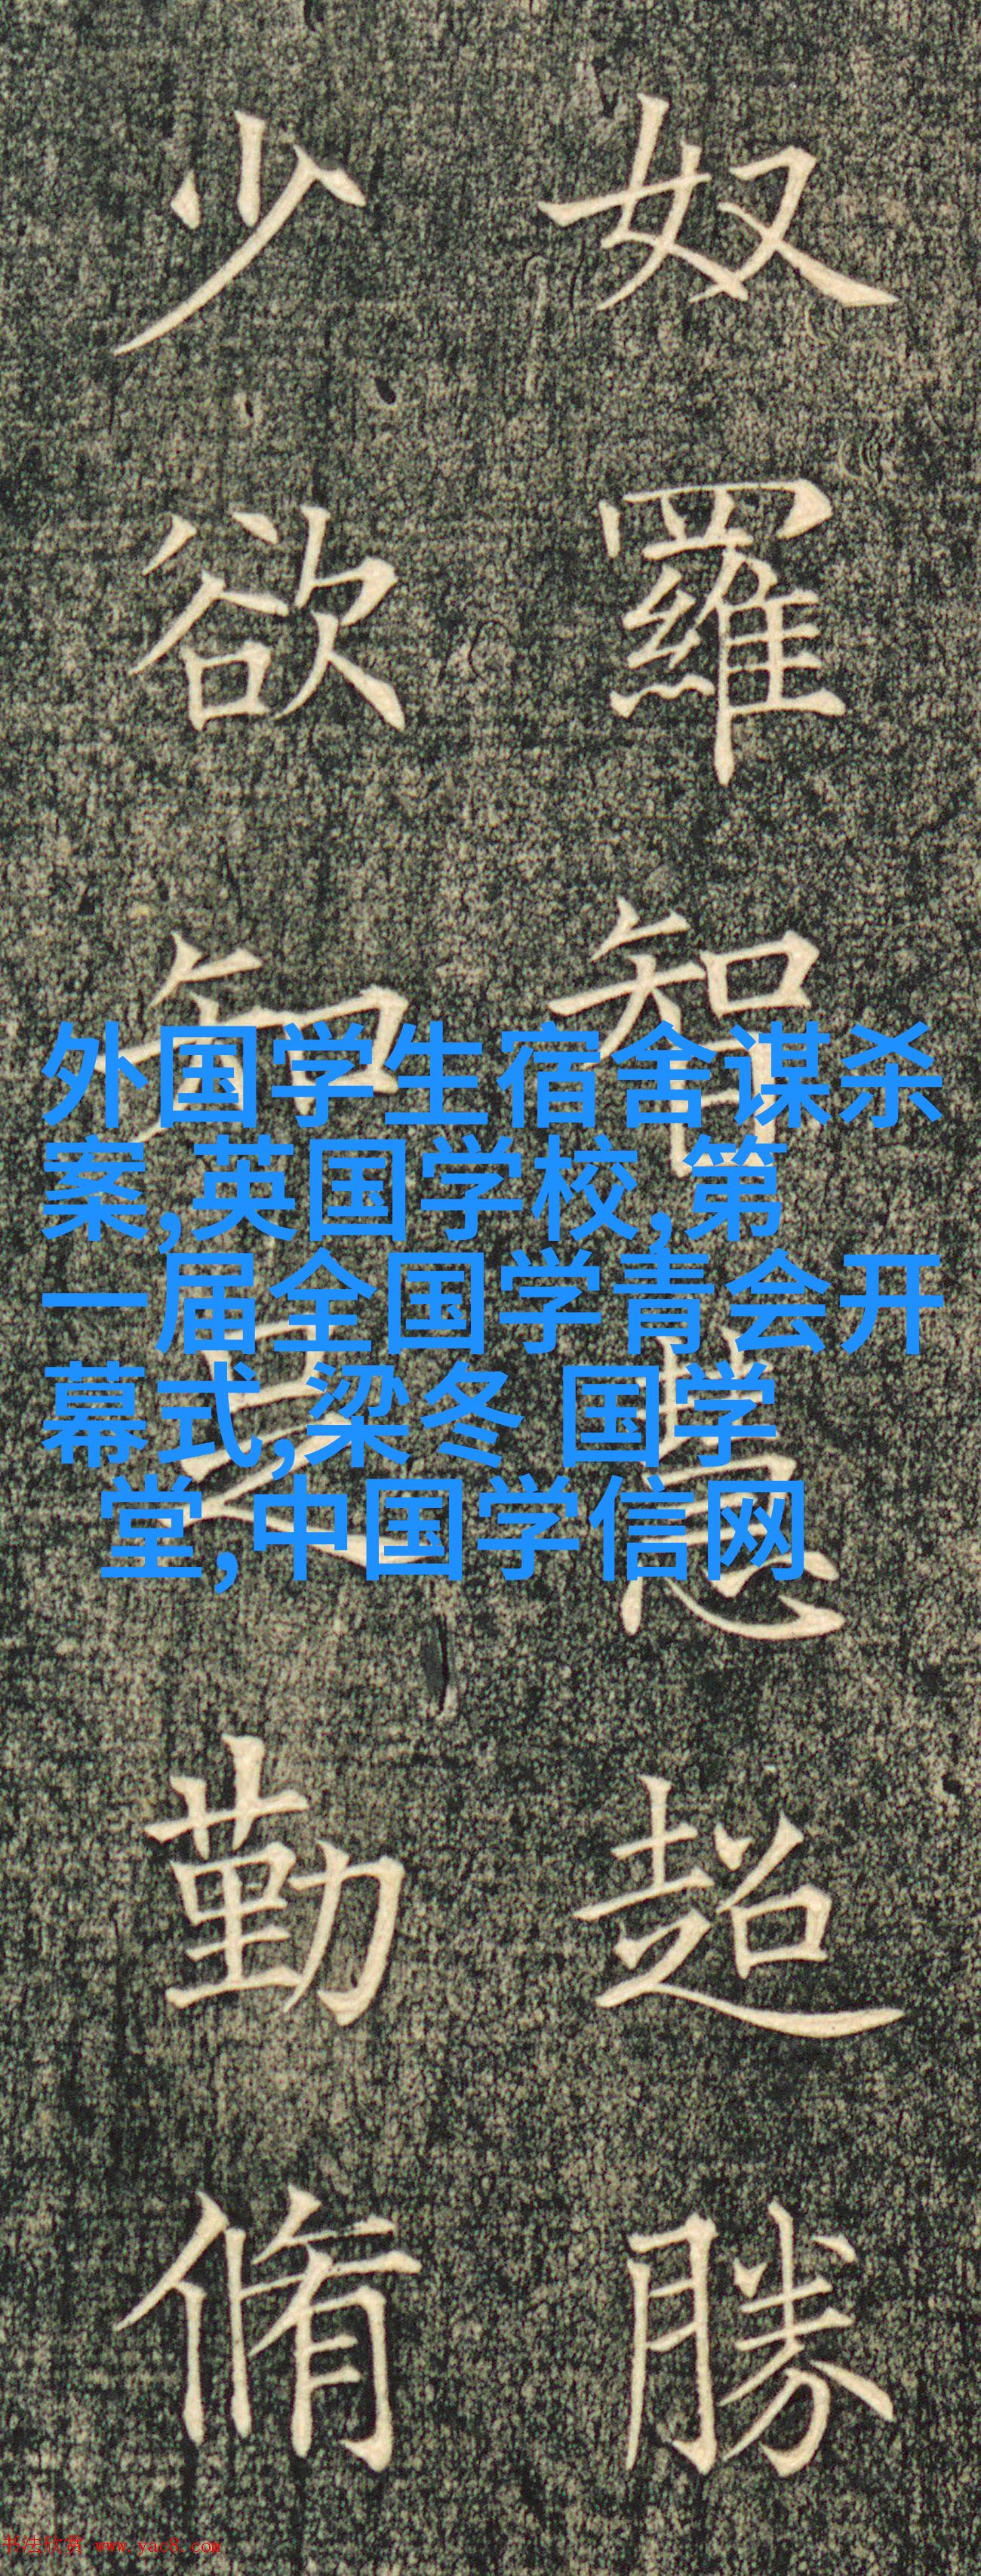 奴羅智慧超勝
少欲知足勤脩
外国学生宿舍谋杀
案,英国学校,第
一届全国学青会开
幕式,梁冬 国学
堂,中国学信网
书法欣赏 www.yac8.com